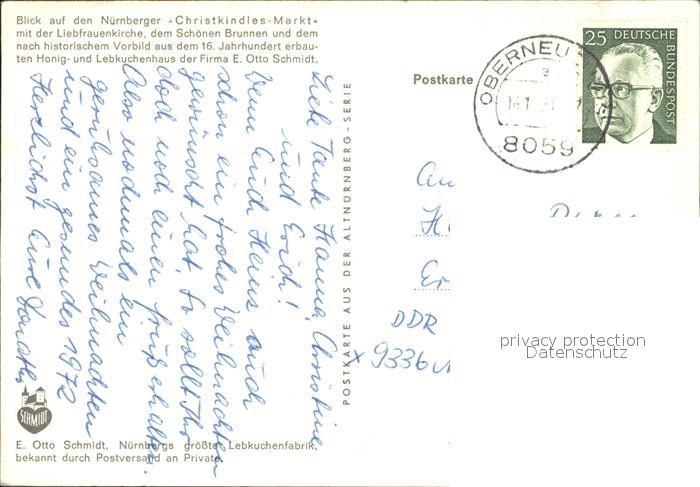 Blick auf den Nürnberger »Christkindles-Markt«
mit der Liebfrauenkirche, dem Schönen Brunnen und dem
nach historischem Vorbild aus dem 16. Jahrhundert erbau-
ten Honig- und Lebkuchenhaus der Firma E. Otto Schmidt.
Liebe Tante Hanna, Christine
und Erich!
Wenn Euch Heinz auch
schon ein frohes Weihnachten
gewünscht hat, so sollt Ihr
doch noch einen Gruß erhalten.
Also nochmals ein
geruhsames Weihnachten
und ein gesundes 1972
Herzlichst Eure
SCHMIDT
E. Otto Schmidt, Nürnbergs größte Lebkuchenfabrik,
bekannt durch Postversand an Private.
POSTKARTE AUS DER ALTNÜRNBERG-SERIE
Postkarte
25 DEUTSCHE
BUNDESPOST
OBERNEU
8059
An
DDR
x 9336
privacy protection
Datenschutz